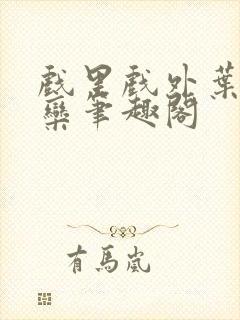 戲里戲外葉
欒筆趣閣
有馬嵐